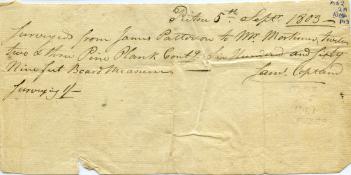 Pitou 5th Sept. 1803—
Surveyed from James Patterson to Wm Mortimer, twenty
two & three Pine Plank Contg. Hundred and sixty
Nine feet Board Measure
Saml. Copland
Surveying